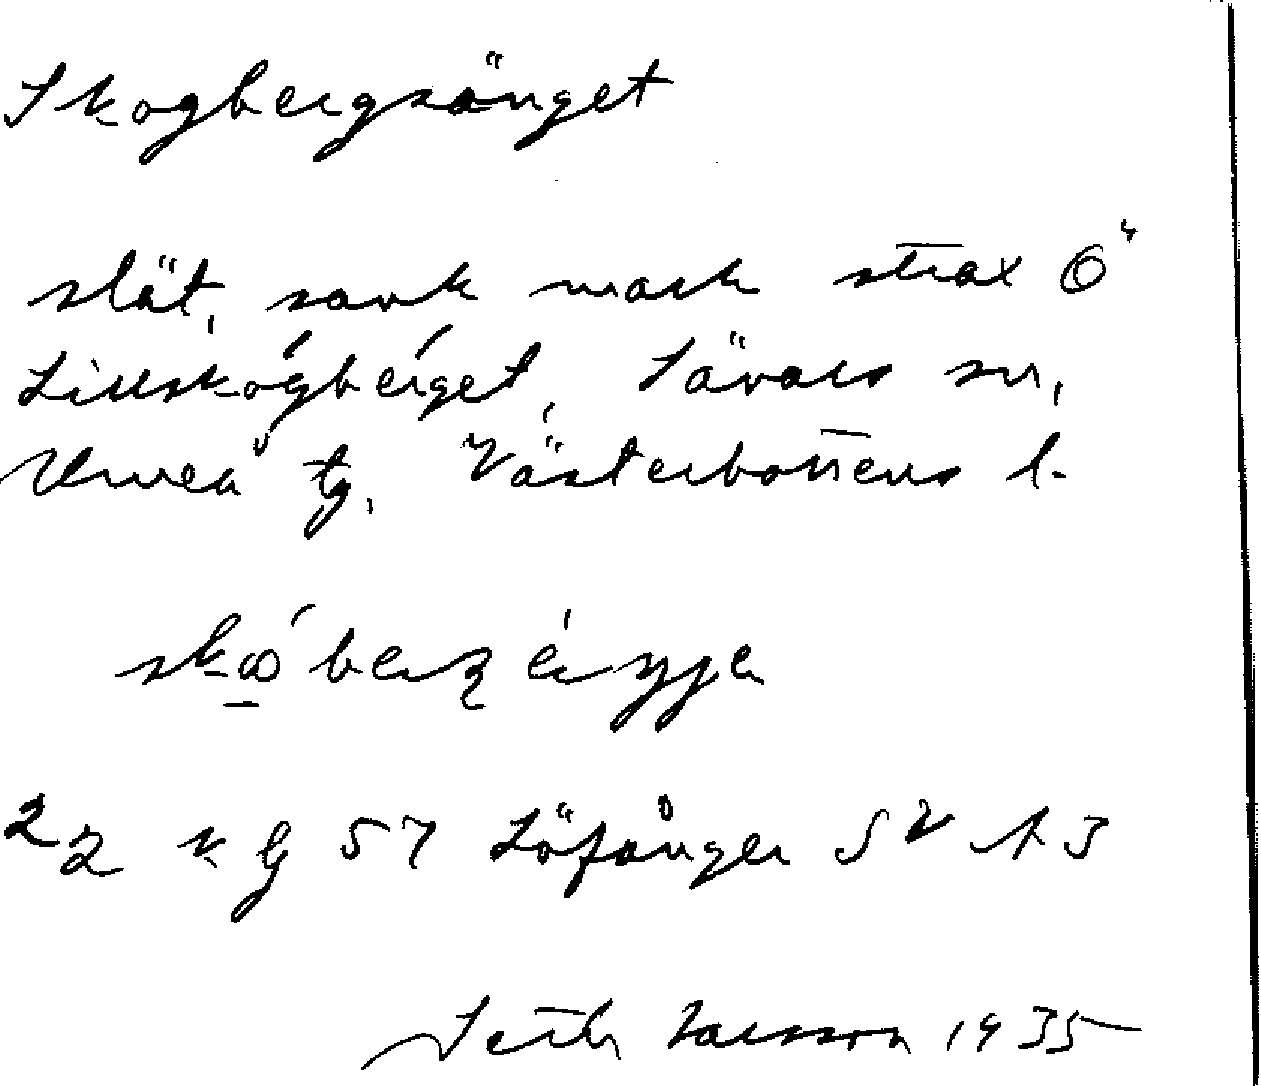 Skogbergsänget
slät, sank mark strax Ö
Lillskogberget, Sävars sn,
Umeå tg, Västerbottens l.
22 k g 57 Lövånger SV A3
Seth Larsson 1935